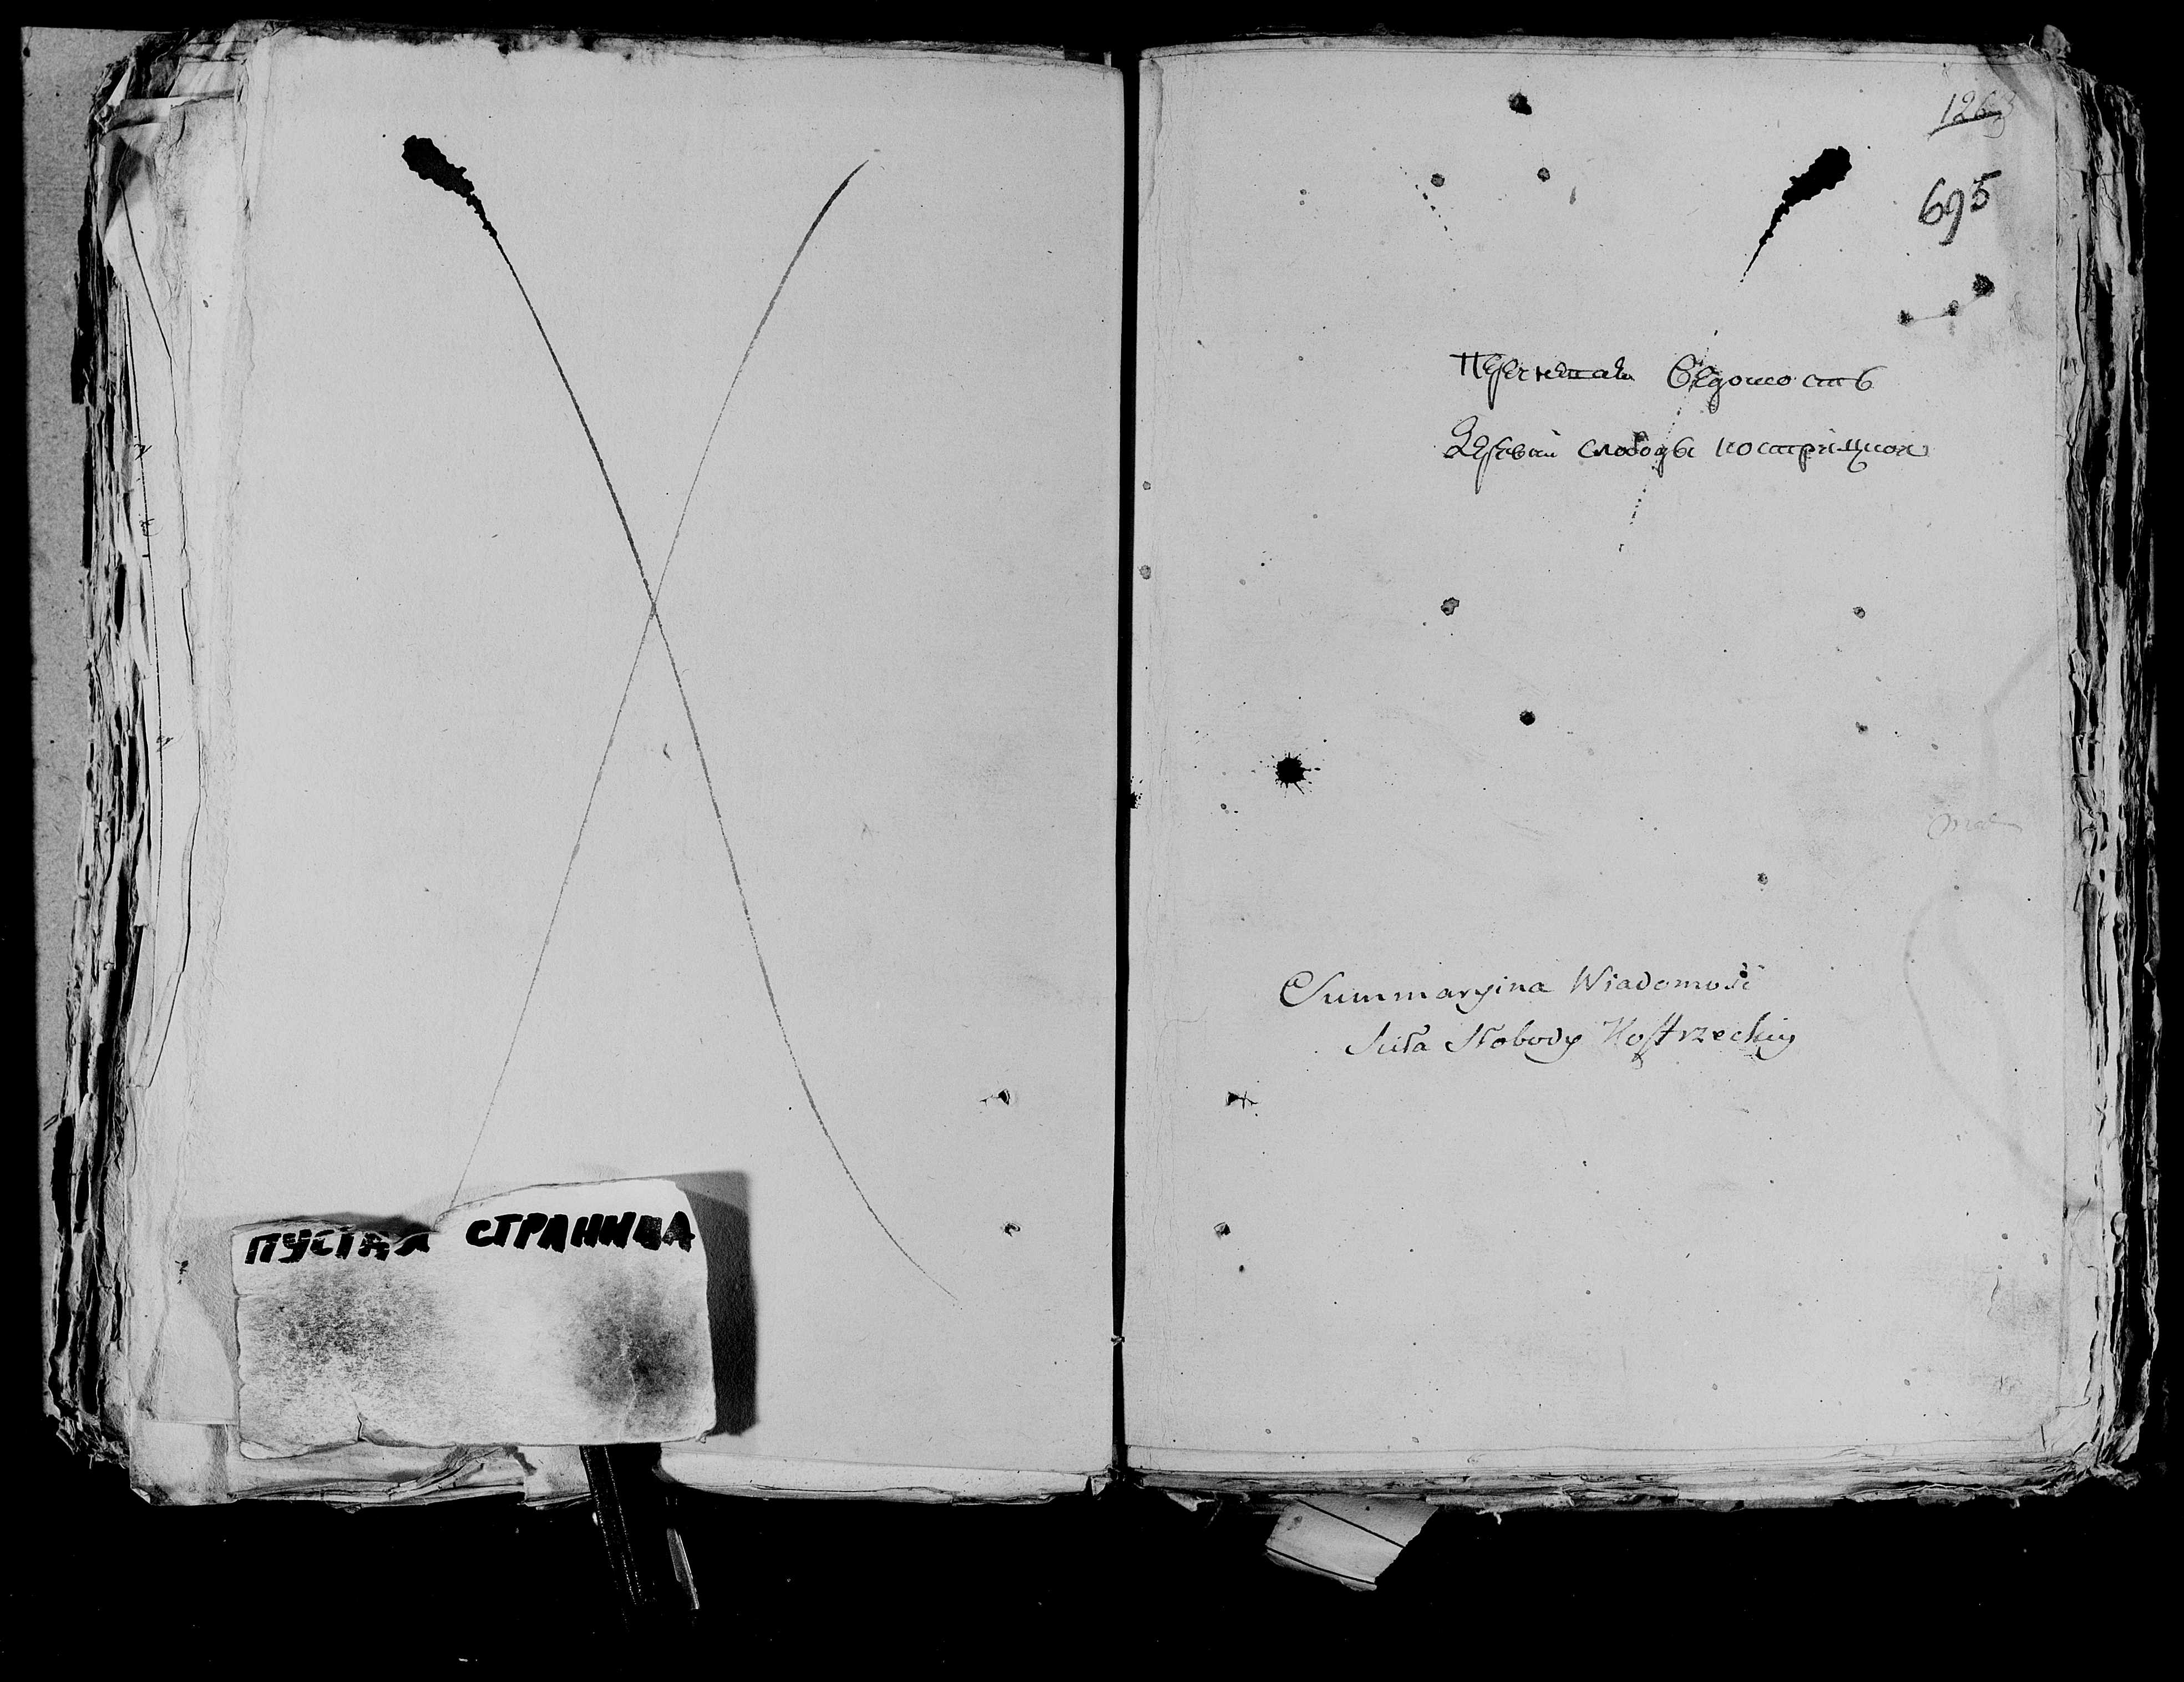 ПУСТАЯ СТРАНИЦА
1263
695
Перечневая Ведомость
слободы кострицкой
Summaryina Wiadomość
Sioła Słobody Kostrzeckiey